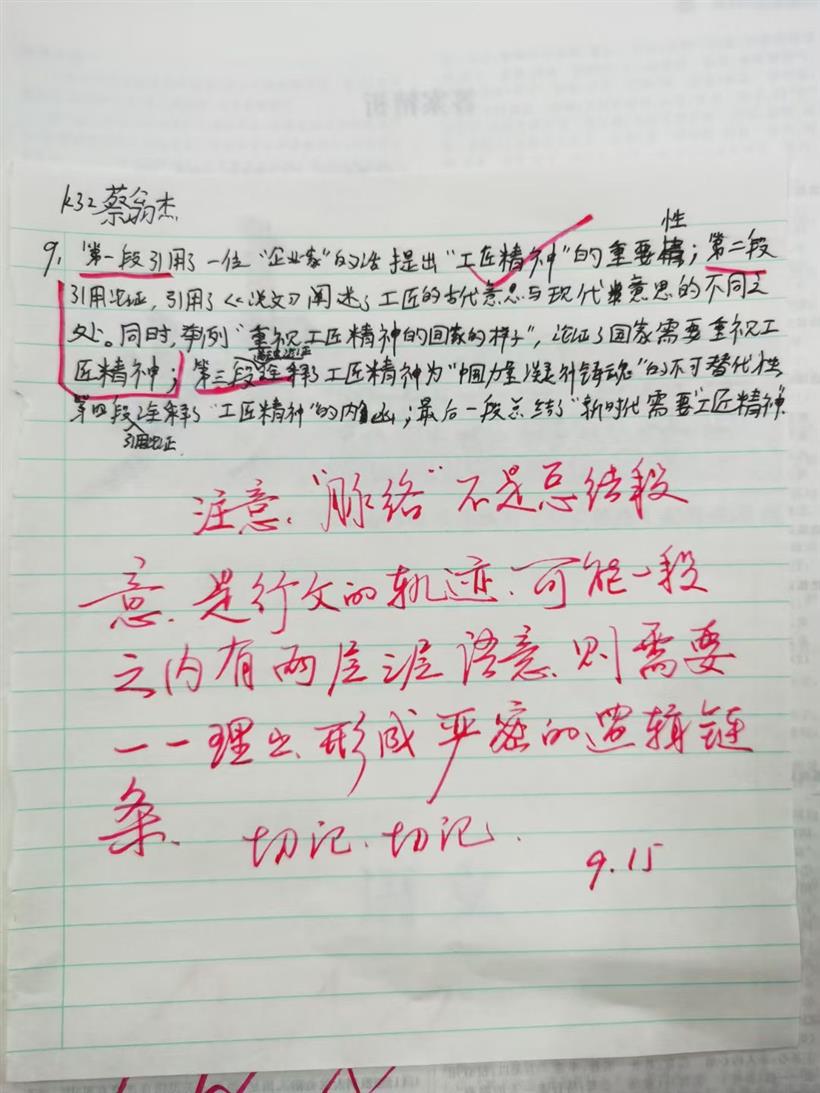 答案精析
K32 蔡翁杰
9. 第一段引用了一位“企业家”的话提出“工匠精神”的重要性；第二段
引用论证，引用了《说文》阐述了工匠的古代意思与现代意思的不同之
处。同时，举例“重视工匠精神的国家的样子”，论证了国家需要重视工
匠精神；第三段诠释了工匠精神为“中国力量凝神铸魂”的不可替代性
第四段诠释了“工匠精神”的内涵；最后一段总结了“新时代需要工匠精神”
引用论证
注意、“脉络”不是总结段
意、是行文的轨迹、可能一段
之内有两层三层语意、则需要
一一理出、形成严密的逻辑链
条、切记、切记、
9.15